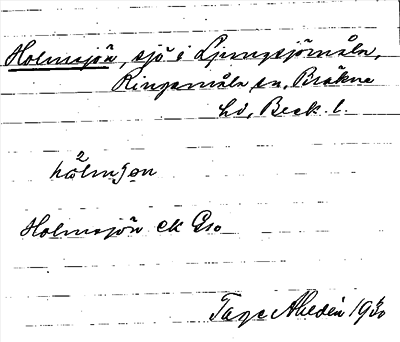 Holmsjön, sjö i Ljungsjömåla,
Ringamåla sn, Bräkne
hd, Blek. l.
hòlmʃən
Holmsjön ek Gso
Tage Ahldén 1930